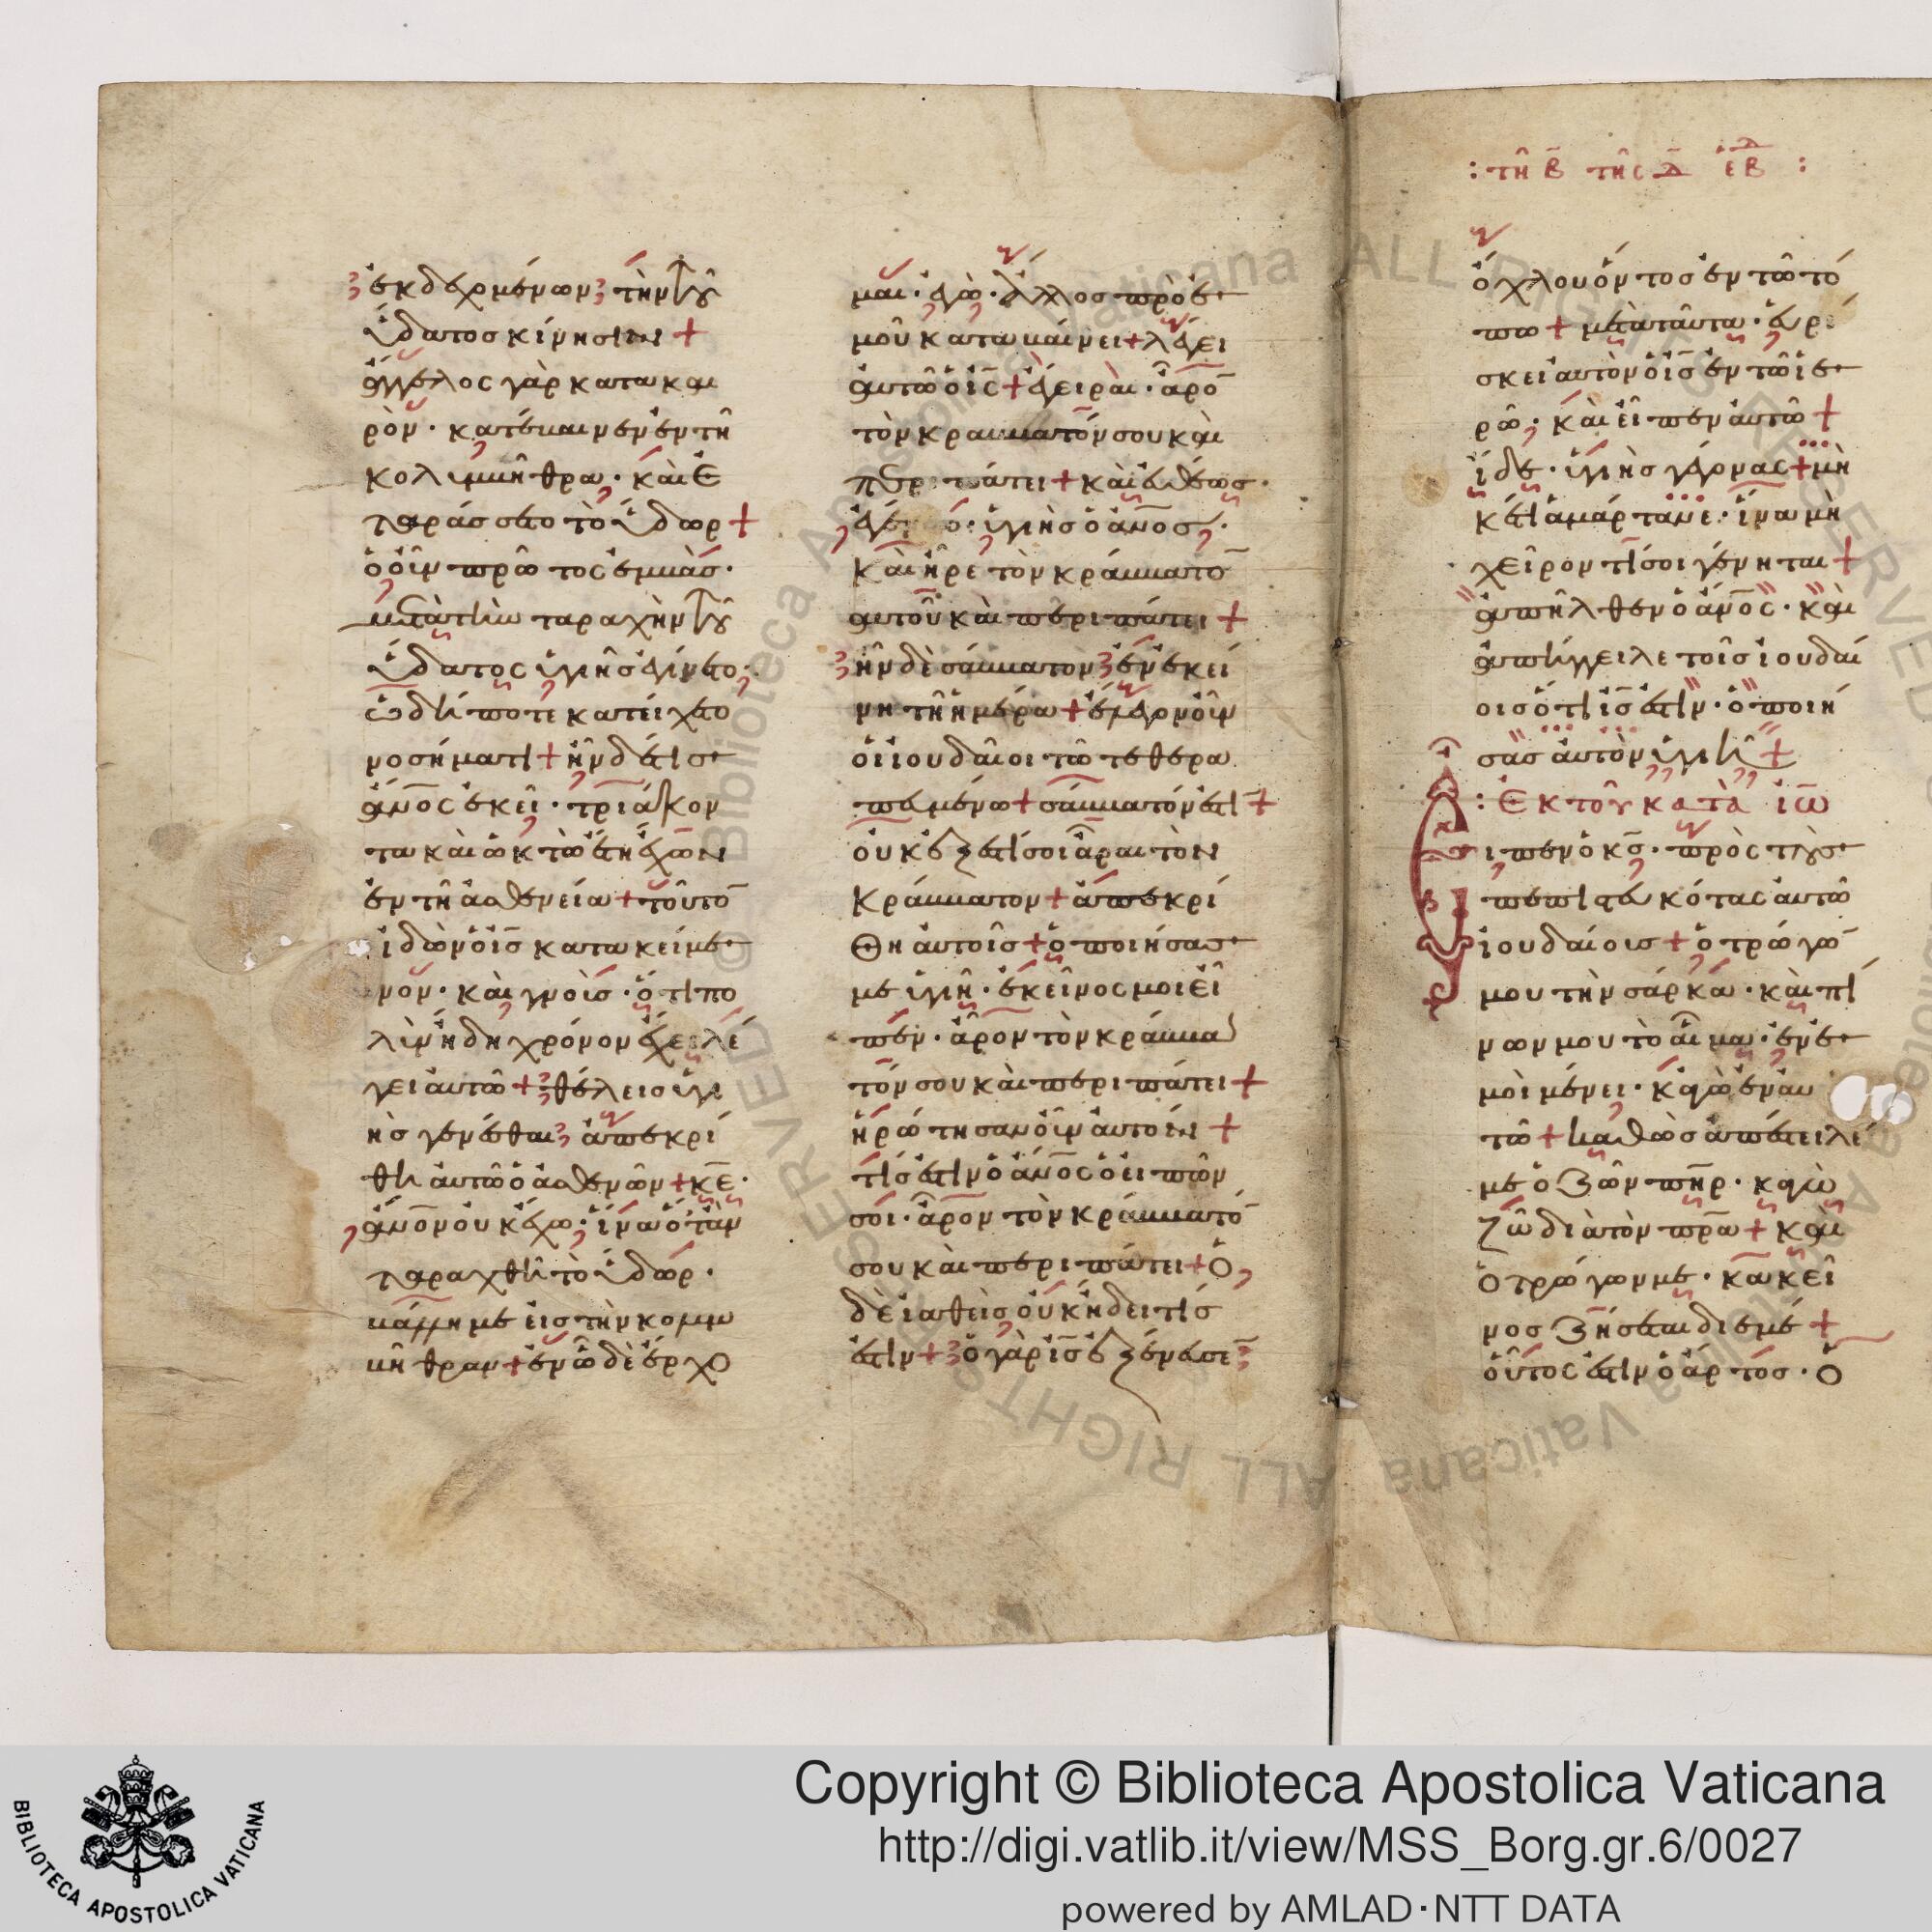 ἐκδεχομένων τὴν τοῦ
ὕδατος κίνησιν +
ἄγγελος γὰρ κατα και
ρὸν · κατέβαινεν ἐν τῆ
κολυμβήθρα · καὶ ἐ
ταράσσετο τὸ ὕδωρ +
ὁ οὖν πρῶτος ἐμβὰς ·
μετὰ τὴν ταραχὴν τοῦ
ὕδατος ὑγιὴς ἐγίνετο ·
ὧ δήποτε κατείχετο
νοσήματι + ἦν δέ τις
ἄν̅ο̅ς̅ ἐκεῖ · τριάκον
τα καὶ ὀκτὼ ἔτη ἔχων
ἐν τῆ ἀσθενεία + τοῦτο̅
ἰδὼν ὁ ι̅ς̅ κατακείμε
νον · καὶ γνοὺς · ὅτι πο
λὺν ἤδη χρόνον ἔχει λέ
γει αὐτῶ + θέλεις ὑγι
ὴς γενέσθαι ἀπεκρί
θη αὐτῶ ὁ ἀσθενῶν + κ̅ε̅ ·
ἄν̅ο̅ν̅ οὐκ ἔχω · ἵνα ὅταν
ταραχθῆ τὸ ὕδωρ ·
βάλλη με εἰς τὴν κολυμ
βήθραν + ἐν ὧ δὲ ἔρχο
μαι · ἐγὼ · ἄλλος πρὸ ἐ
μοῦ καταβαίνει + λέγει
αὐτῶ ὁ ι̅ς̅ + ἔγειραι · ἆρο̅
τὸν κράββατόν σου καὶ
περιπάτει + καὶ εὐθέως ·
ὑγιὴς ὁ ἄν̅ο̅ς̅ ·
καὶ ἦρε τὸν κράββατο̅
αὐτοῦ καὶ περιπάτει +
ἦν δὲ σάββατον ἐν ἐκεί
νη τῆ ἡμέρα + ἔλεγον οὖν
οἱ ἰουδαῖοι τῶ τεθερα
πευμένω + σάββατόν ἐστι̅ +
οὐκ ἔξεστί σοι ἆραι τὸν
κράββατον + ἀπεκρί
θη αὐτοῖς + ὁ ποιήσας
με ὑγιῆ · ἐκεῖνος μοι εἶ
πεν · ἆρον τὸν κράββα
τόν σου καὶ περιπάτει +
ἠρώτησαν οὖν αὐτὸν +
τίς ἐστιν ὁ ἄν̅ο̅ς̅ ὁ εἰπών
σοι · ἆρον τὸν κράββατό̅
σου καὶ περιπάτει + ὁ
δὲ ἰαθεὶς οὐκ ἤδει τίς
ἐστιν + ὁ γὰρ ι̅ς̅ ἐξένευσε̅
: τῆ β̅ τῆς δ̅ ἑβδ :
ὄχλου ὄντος ἐν τῶ τό
πω + μετὰ ταῦτα · εὑρί
σκει αὐτὸν ὁ ι̅ς̅ ἐν τῶ ἱε
ρῶ · καὶ εἶπεν αὐτῶ +
ἴδε · ὑγιὴς γέγονας + μη
κέτι ἁμάρτανε · ἵνα μὴ
χεῖρον τί σοι γένηται +
ἀπῆλθεν ὁ ἄν̅ο̅ς̅ · καὶ
ἀπήγγειλε τοῖς ἰουδαί
οις ὅτι ι̅ς̅ ἐστιν · ὁ ποιή
σας αὐτὸν ὑγιῆ +
: Ἐκ τοῦ κατὰ ἰω̅
Εἶπεν ὁ κ̅ς̅ · πρὸς τοὺς
πεπιστευκότας αὐτῶ
ἰουδαίοις + ὁ τρώγω̅
μου τὴν σάρκα · καὶ πί
νων μου τὸ αἷμα · ἐν ἐ
μοὶ μένει · κἀγὼ ἐν αὐ
τῶ + καθὼς ἀπέστειλέ
με ὁ ζῶν π̅η̅ρ̅ · κἀγὼ
ζῶ διὰ τὸν π̅ρ̅α̅ + καὶ
ὁ τρώγων με · κακεῖ
νος ζήσεται δι ἐμέ +
οὗτος ἐστιν ὁ ἄρτος · ὁ
Copyright © Biblioteca Apostolica Vaticana
http://digi.vatlib.it/view/MSS_Borg.gr.6/0027
powered by AMLAD·NTT DATA
BIBLIOTECA APOSTOLICA VATICANA